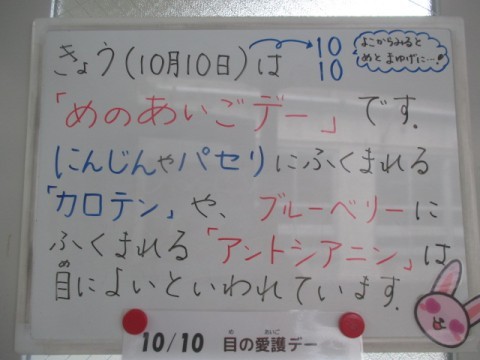 きょう(10月10日)は
10
10
よこからみると
めと まゆげに…!
「めのあいごデー」です.
にんじんやパセリにふくまれる
「カロテン」や、ブルーベリーに
ふくまれる「アントシアニン」は
目によいといわれています.
め
10/10 目の愛護デー
め あいご